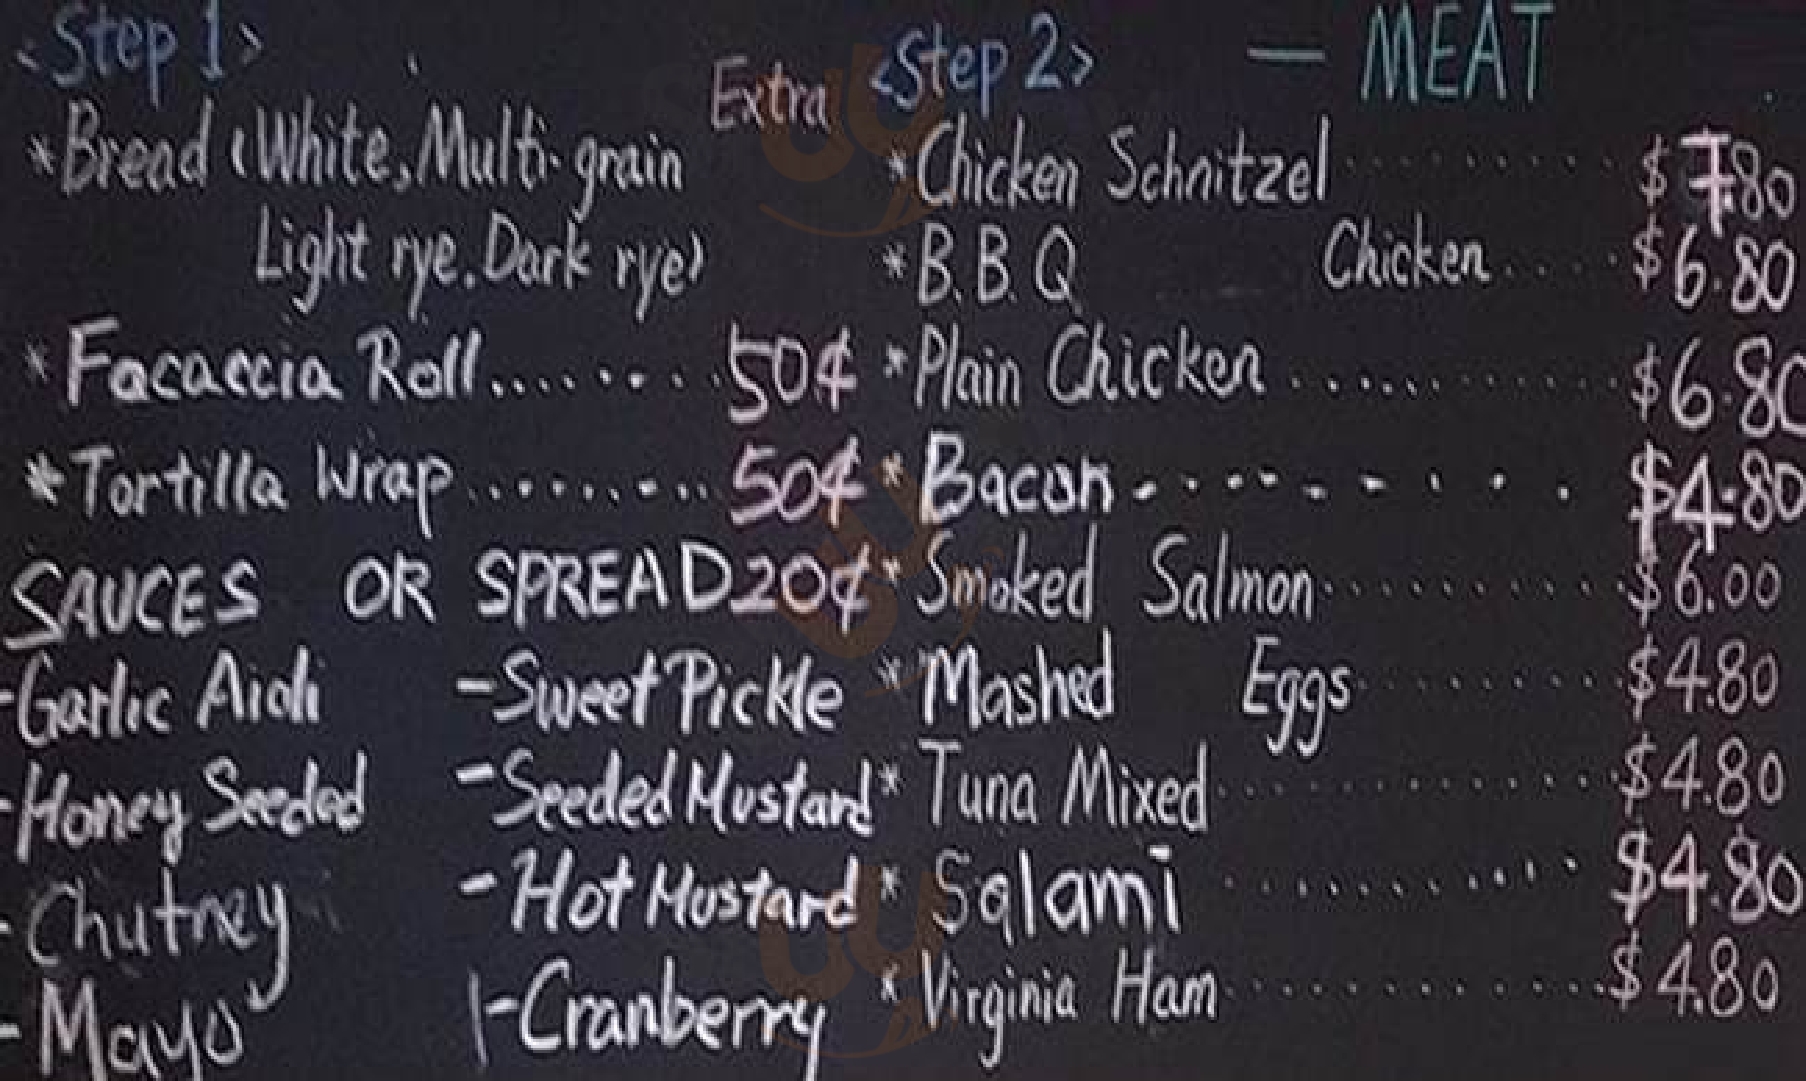 <Step 1>
Extra
*Bread (White, Multi-grain
Light rye. Dark rye)
*Focaccia Roll......... 50¢
*Tortilla Wrap......... 50¢
SAUCES OR SPREAD 20¢
-Garlic Aioli
-Honey Seeded
-Chutney
-Mayo
-Sweet Pickle
-Seeded Mustard
-Hot Mustard
-Cranberry
<Step 2> — MEAT
*Chicken Schnitzel ......... $7.80
*B.B.Q Chicken..... $6.80
*Plain Chicken ............ $6.80
*Bacon - - - - - - - - - $4.80
*Smoked Salmon........... $6.00
*Mashed Eggs.......... $4.80
*Tuna Mixed............. $4.80
*Salami ........... $4.80
*Virginia Ham............. $4.80